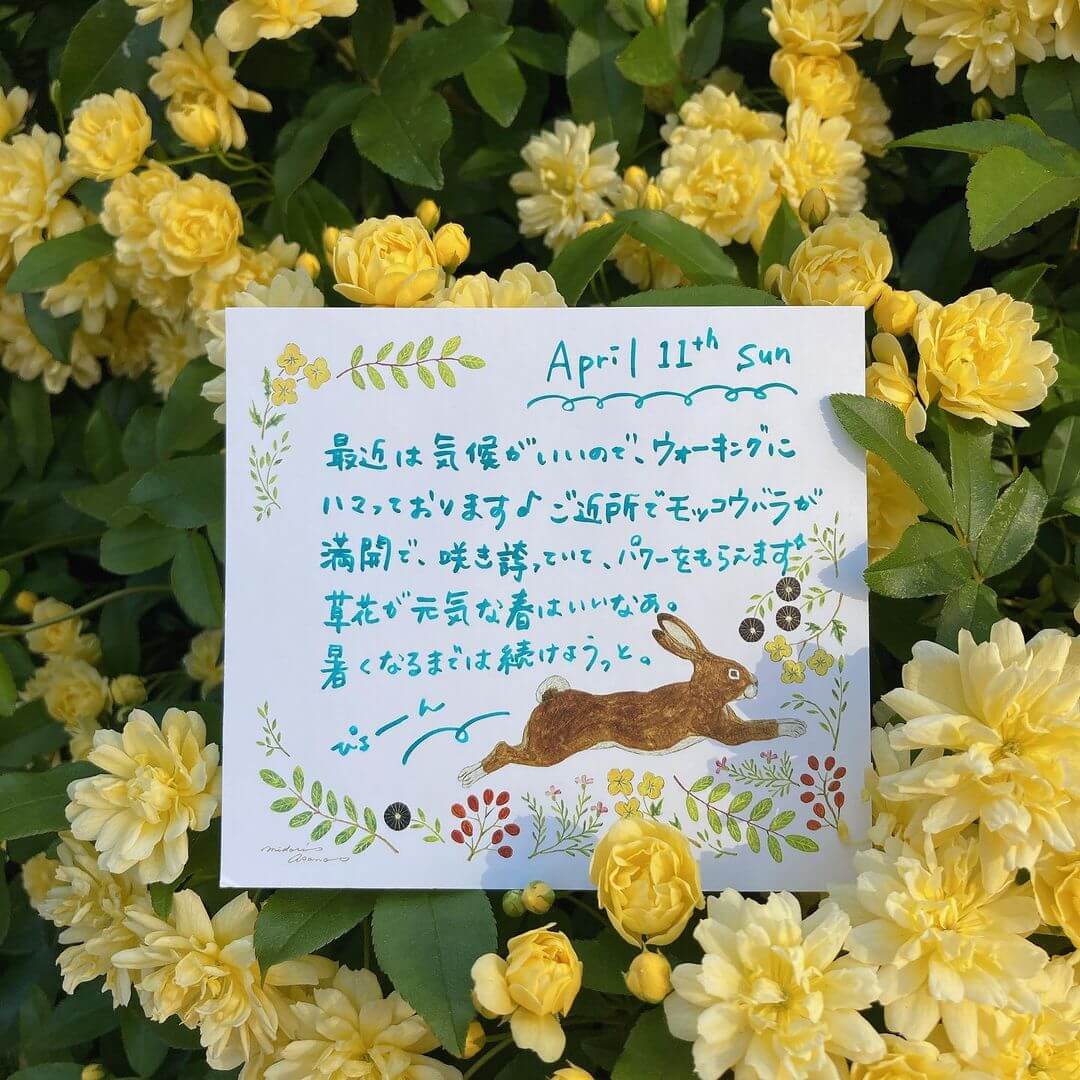 April 11th sun
最近は気候がいいので、ウォーキングに
ハマっております♪ご近所でモッコウバラが
満開で、咲き誇っていて、パワーをもらえます
草花が元気な春はいいなぁ。
暑くなるまでは続けようっと。
ぴろーん
midori asano